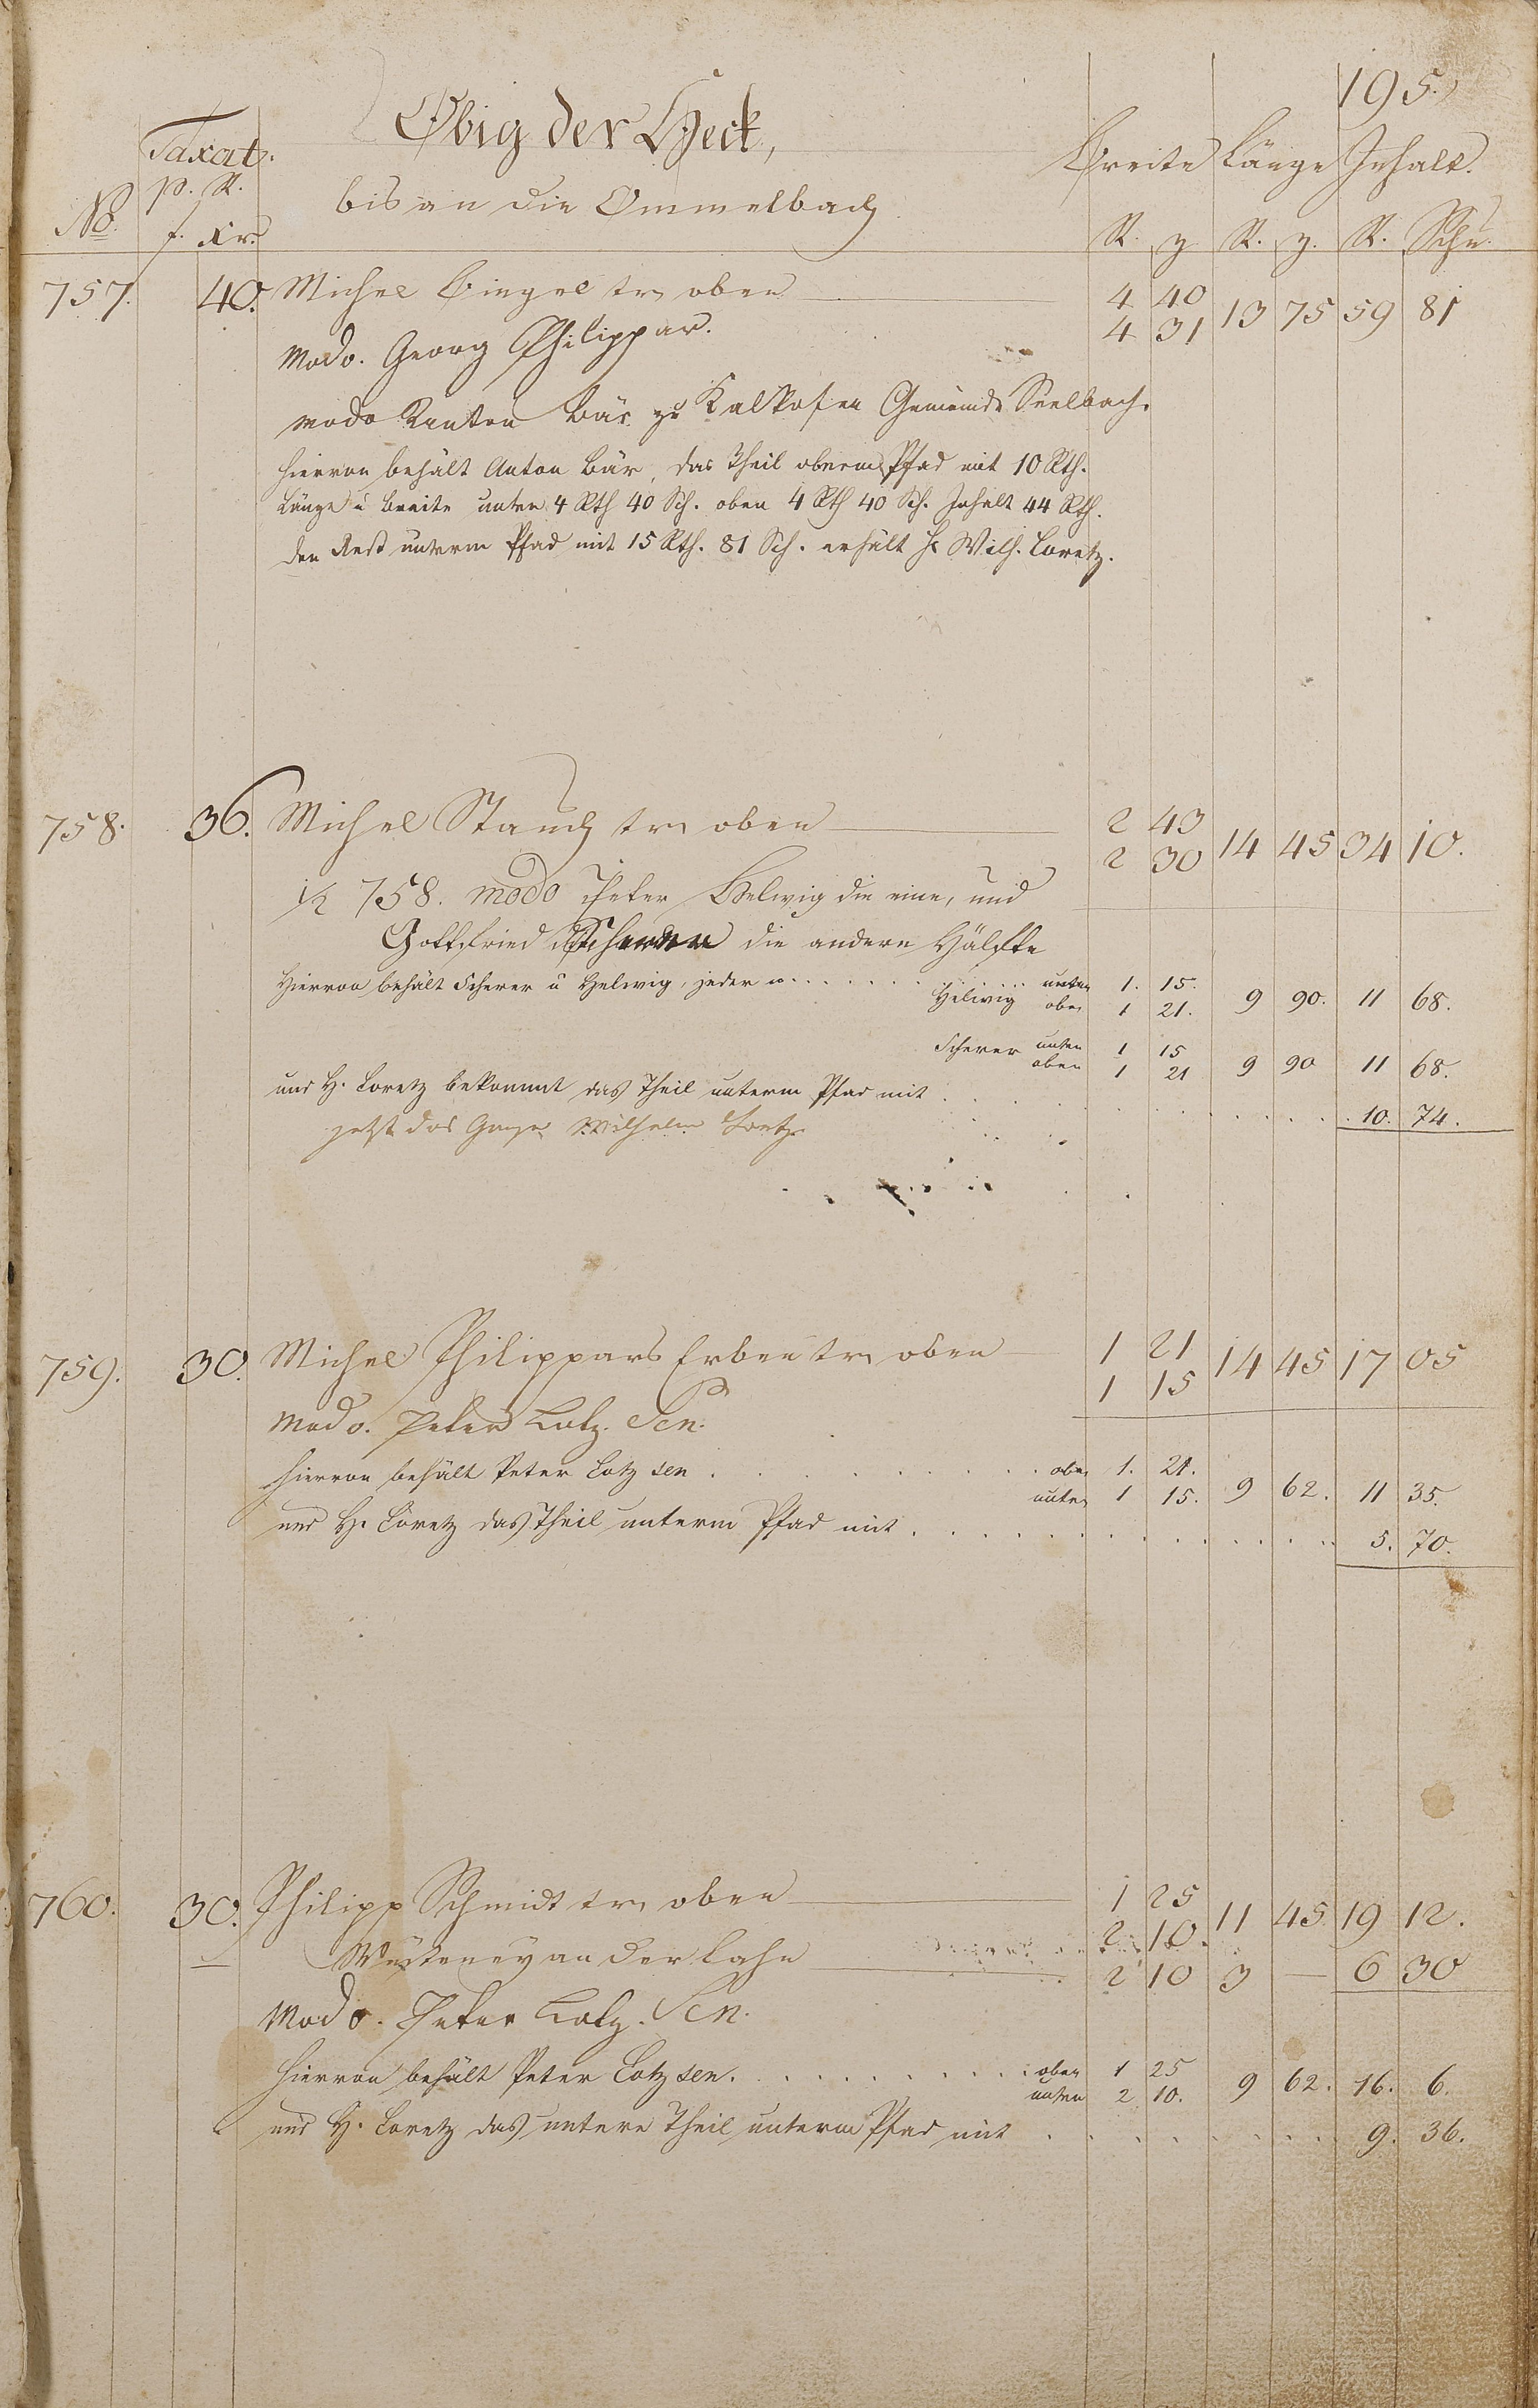 195.
Obig der Heck,
Taxat. Breite Länge Inhalt.
p. R. bis an die Ommelbach
No. f. Xr. R. z. R. z. R. Schu.
757. 40. Michel Bingel tr. oben 4 40 13 75 59 81
4 31
modo. Georg Philippar.
modo Anton Bär zu Kalkofen Gemeinde Seelbach.
hiervon behält Anton Bär, das Theil oberm Pfad mit 10 Rth.
Länge u Breite unten 4 Rth 40 Sch. oben 4 Rth 40 Sch. Inhalt 44 Rth.
den Rest unterm Pfad mit 15 Rth. 81 Sch. erhält H Wilh. Loretz.
758. 36. Michel Stauch tr. oben 2 43 14 45 34 10.
2 30
1/2 758. modo Peter Helwig die eine, und
Gottfried Scherer die andere Hälfte
Hiervon behält Scherer u Helwig, jeder . . . . . . unten 1. 15.
Helwig oben 1 21. 9 90. 11 68.
Scherer unten 1 15
oben 1 21 9 90 11 68.
und H. Loretz bekommt das Theil unterm Pfad mit . . . . 10. 74.
jetzt das Ganze Wilhelm Loretz
759. 30. Michel Philippars Erben tr. oben 1 21 14 45 17 05
1 15
modo. Peter Lotz. Sen.
hiervon behält Peter Lotz sen . . . . . . oben 1. 21.
unten 1 15. 9 62. 11 35.
und H. Loretz das Theil unterm Pfad mit . . . . . . 5. 70.
760. 30. Philipp Schmidt tr. oben 1 25 11 45 19 12.
2 10.
Wüsteney an der Lahn 2 10 3 — 6 30
modo. Peter Lotz. Sen.
hiervon behält Peter Lotz sen. . . . . . . oben 1 25
unten 2 10. 9 62. 16. 6.
und H. Loretz das untere Theil unterm Pfad mit . . . . . . 9. 36.